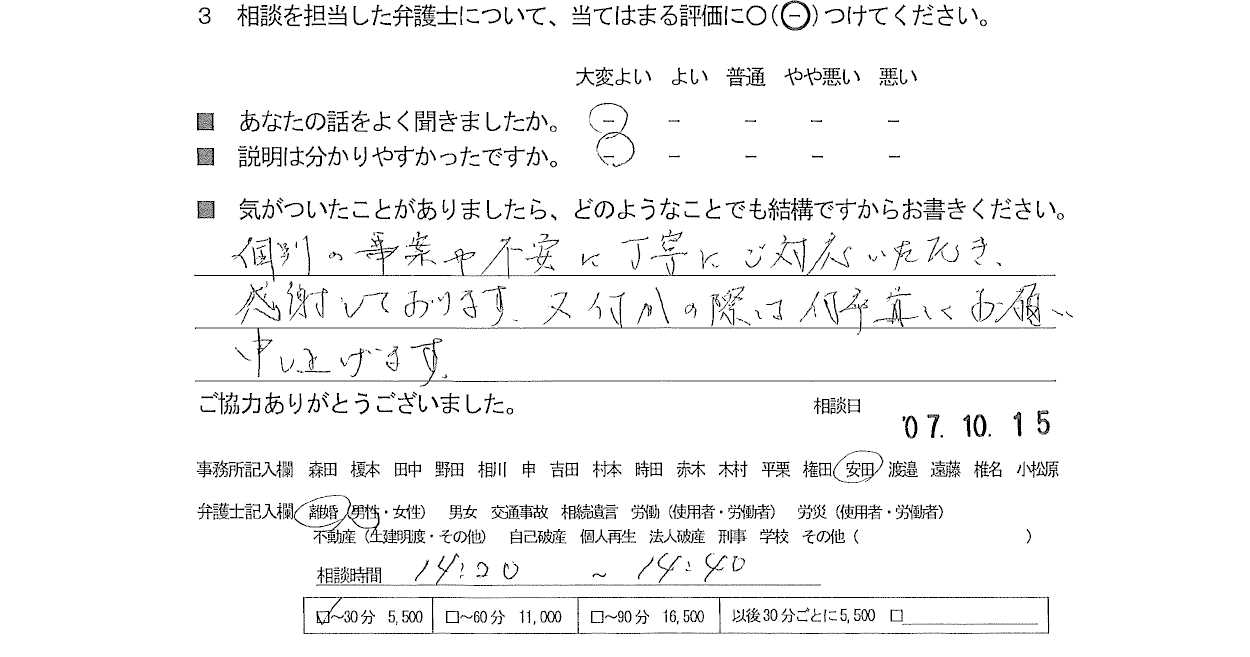 3 相談を担当した弁護士について、当てはまる評価に○(⊖)つけてください。
大変よい よい 普通 やや悪い 悪い
■ あなたの話をよく聞きましたか。 − − − − −
■ 説明は分かりやすかったですか。 − − − − −
■ 気がついたことがありましたら、どのようなことでも結構ですからお書きください。
個別の事案や不安に丁寧にご対応いただき、
感謝しております。又何かの際は何卒宜しくお願い
申し上げます。
ご協力ありがとうございました。 相談日 '07.10.15
事務所記入欄 森田 榎本 田中 野田 相川 申 吉田 村本 時田 赤木 木村 平栗 権田 安田 渡邉 遠藤 椎名 小松原
弁護士記入欄 離婚(男性・女性) 男女 交通事故 相続遺言 労働(使用者・労働者) 労災(使用者・労働者)
不動産(土建明渡・その他) 自己破産 個人再生 法人破産 刑事 学校 その他( )
相談時間 14:20 ~ 14:40
☑~30分 5,500 □~60分 11,000 □~90分 16,500 以後30分ごとに5,500 □